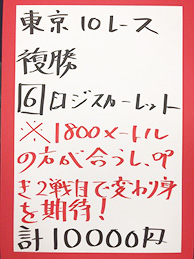 東京10レース
複勝
6 ロジスカーレット
※1800メートル
の方が合うし、叩
き2戦目で変わり身
を期待!
計10000円